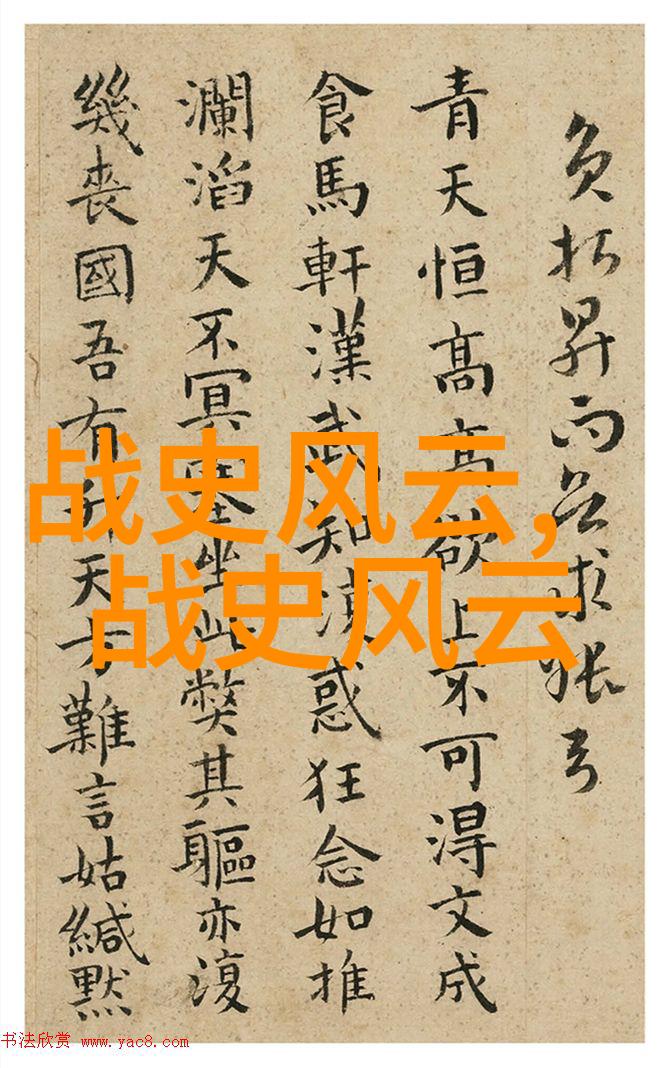 昇而求
青天恒高高欲上不可得文成
食馬軒漢武知惑狂念如推
瀾滔天不冥坐此獘其軀亦復
幾喪國吾有升天方難言姑緘默
战史风云,
战史风云
书法欣赏 www.yac8.com